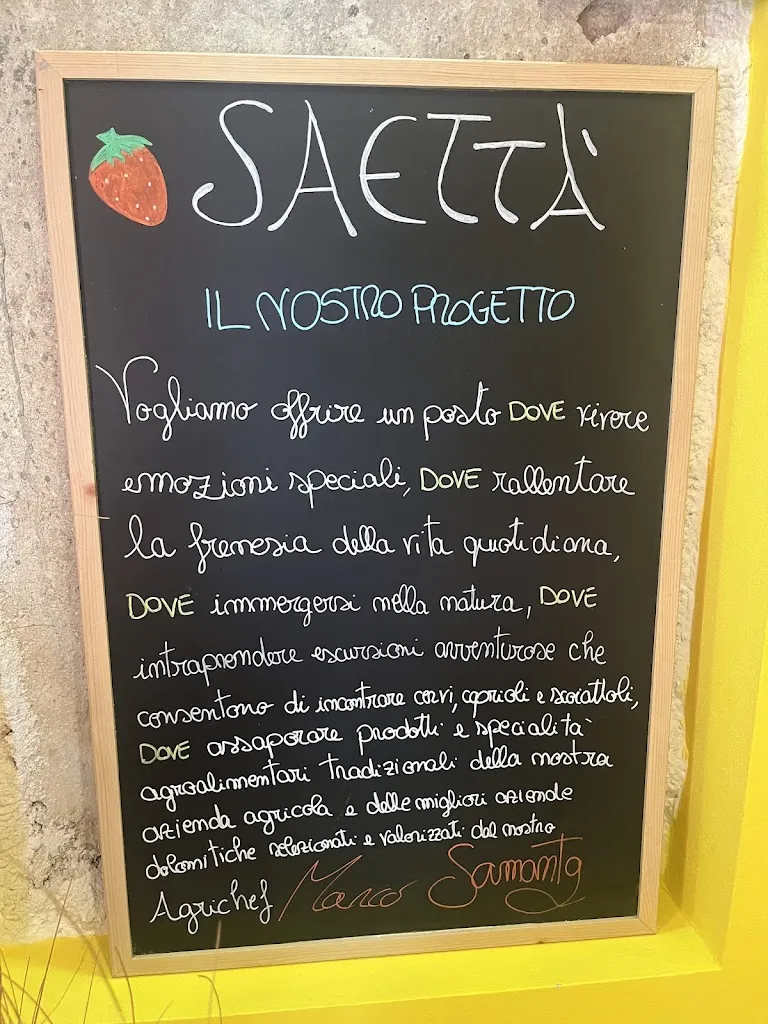 SAETTÀ
IL NOSTRO PROGETTO
Vogliamo offrire un posto DOVE vivere
emozioni speciali, DOVE rallentare
la frenesia della vita quotidiana,
DOVE immergersi nella natura, DOVE
intraprendere escursioni avventurose che
consentono di incontrare cervi, caprioli e scoiattoli,
DOVE assaporare prodotti e specialità
agroalimentari tradizionali della nostra
azienda agricola e delle migliori aziende
dolomitiche selezionati e valorizzati dal nostro
Agrichef Marco Samanta